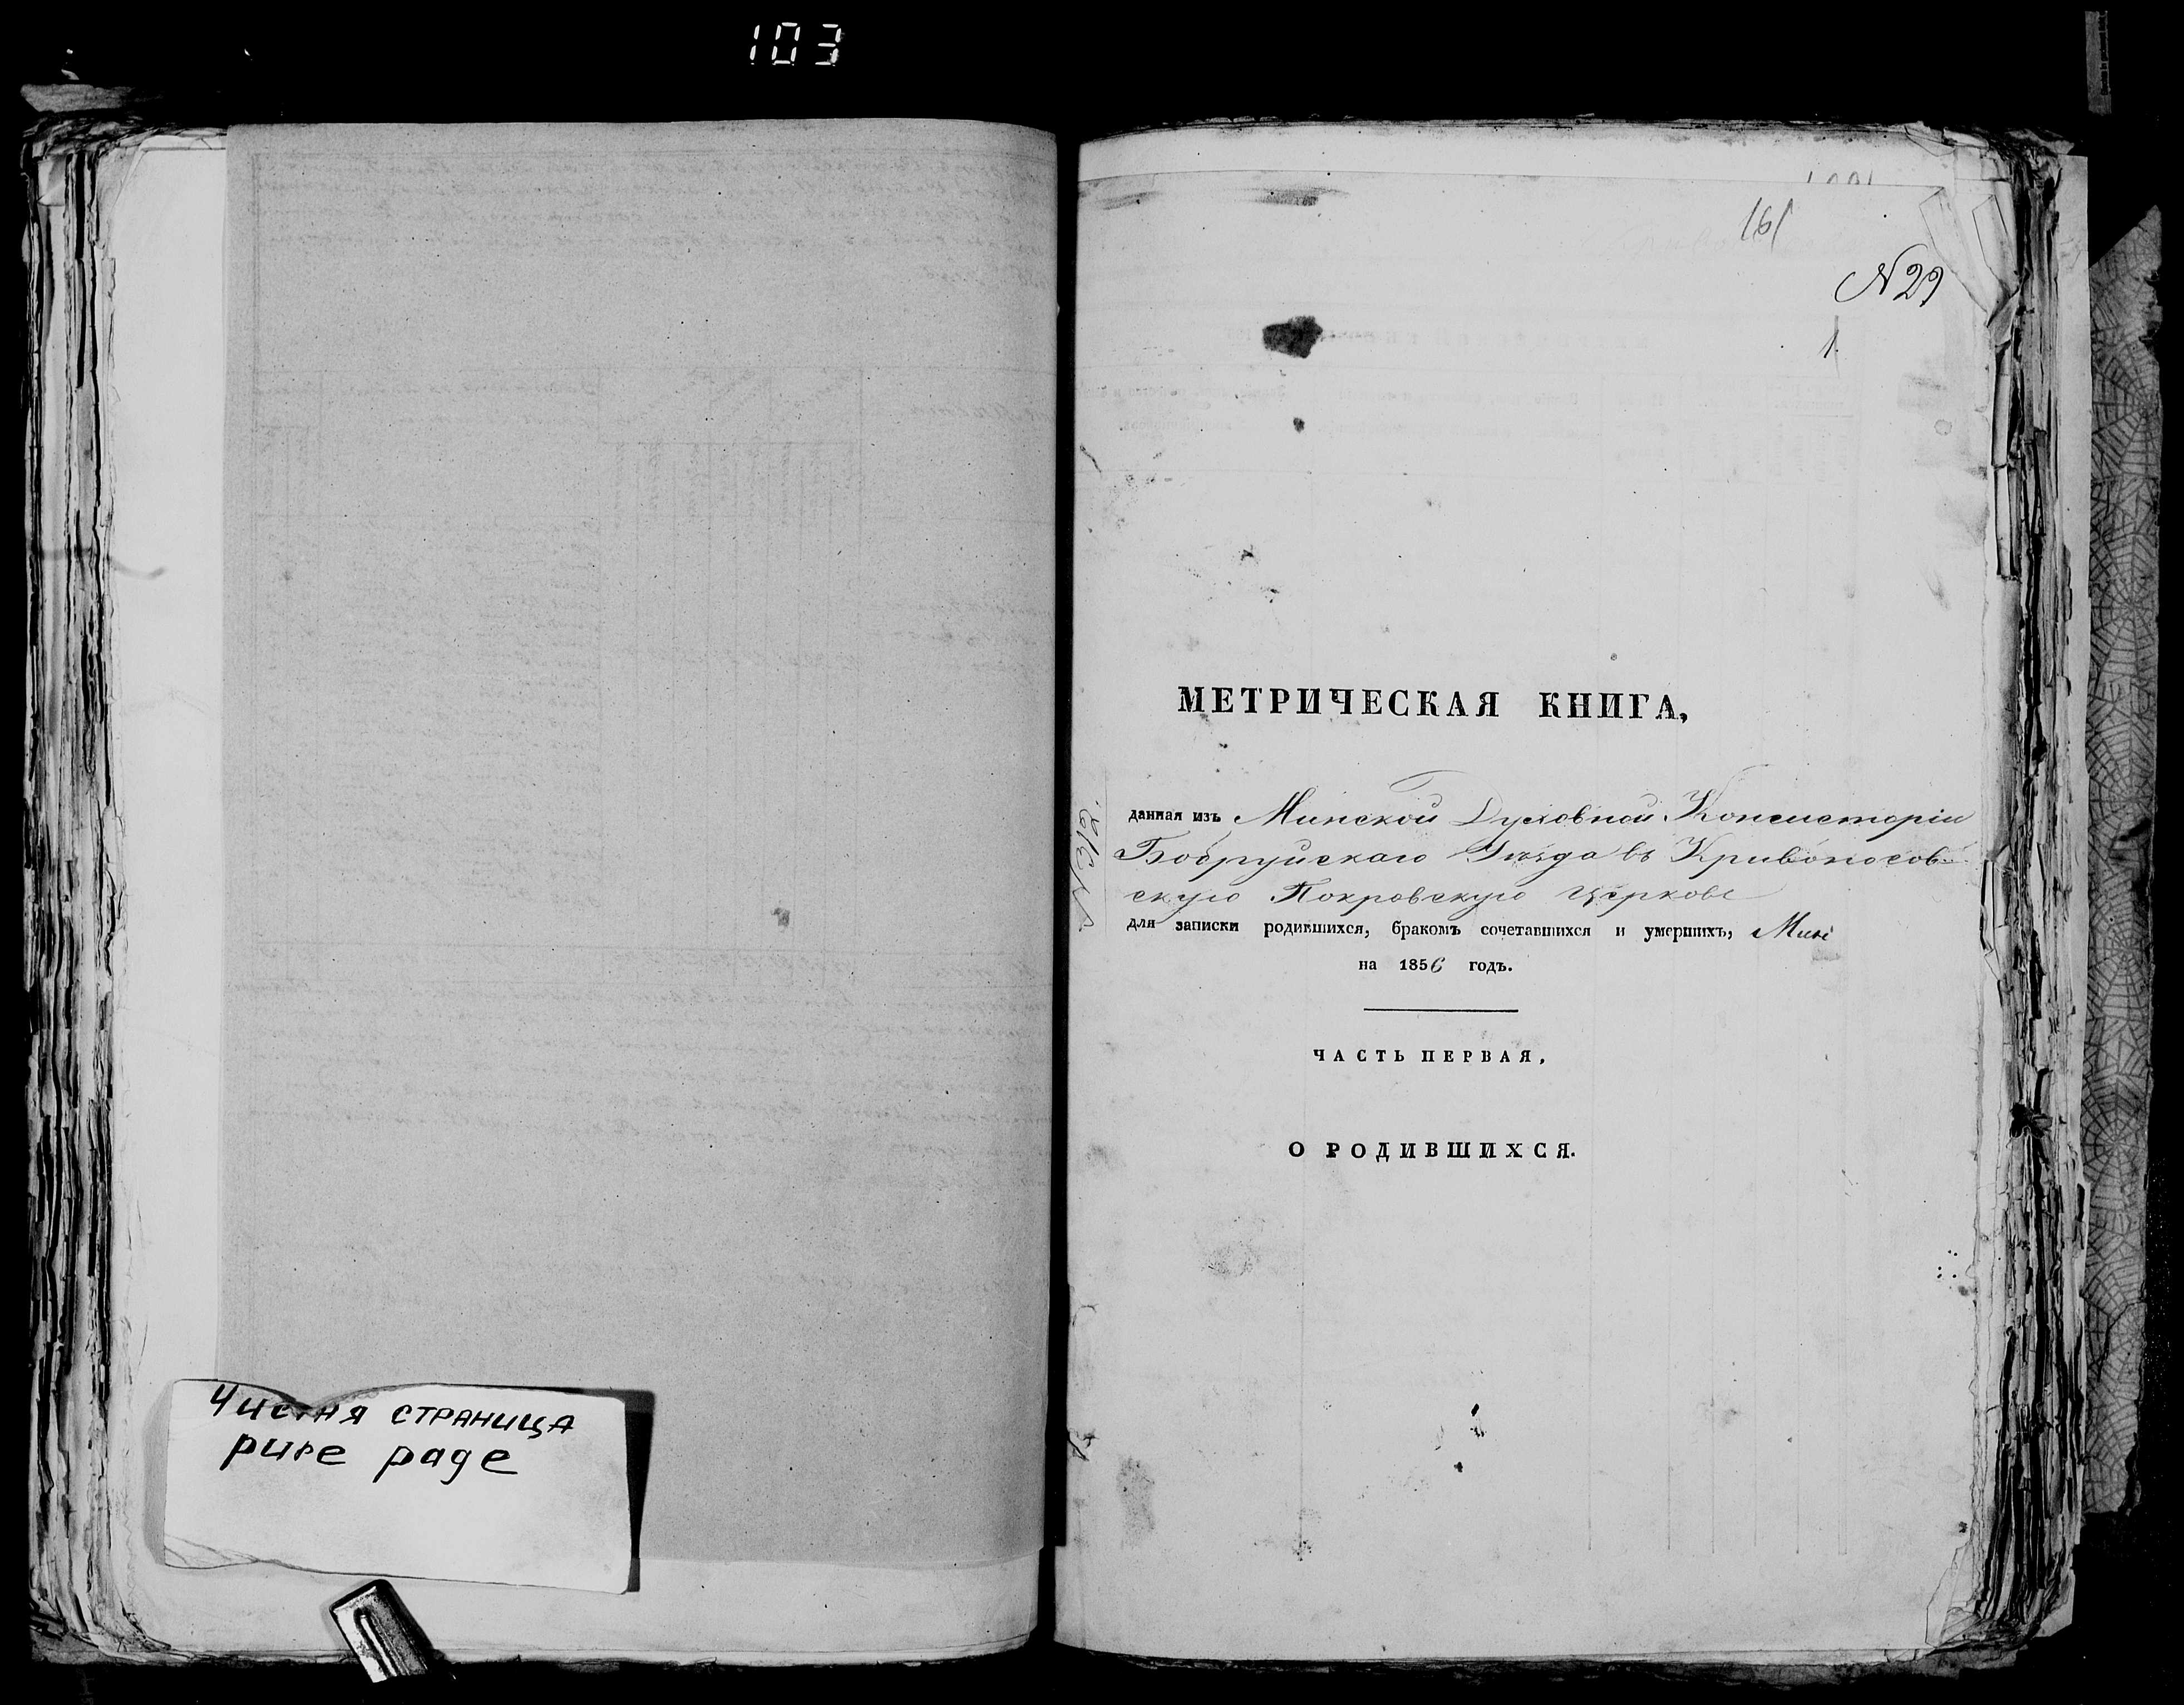 103
161
N 29
1.
МЕТРИЧЕСКАЯ КНИГА,
данная изъ Минской Духовной Консисторіи
Бобруйскаго Уѣзда въ Кривоносов-
скую Покровскую церковь
для записки родившихся, бракомъ сочетавшихся и умершихъ,
на 1856 годъ.
ЧАСТЬ ПЕРВАЯ,
О РОДИВШИХСЯ.
Чистая страница
pure page